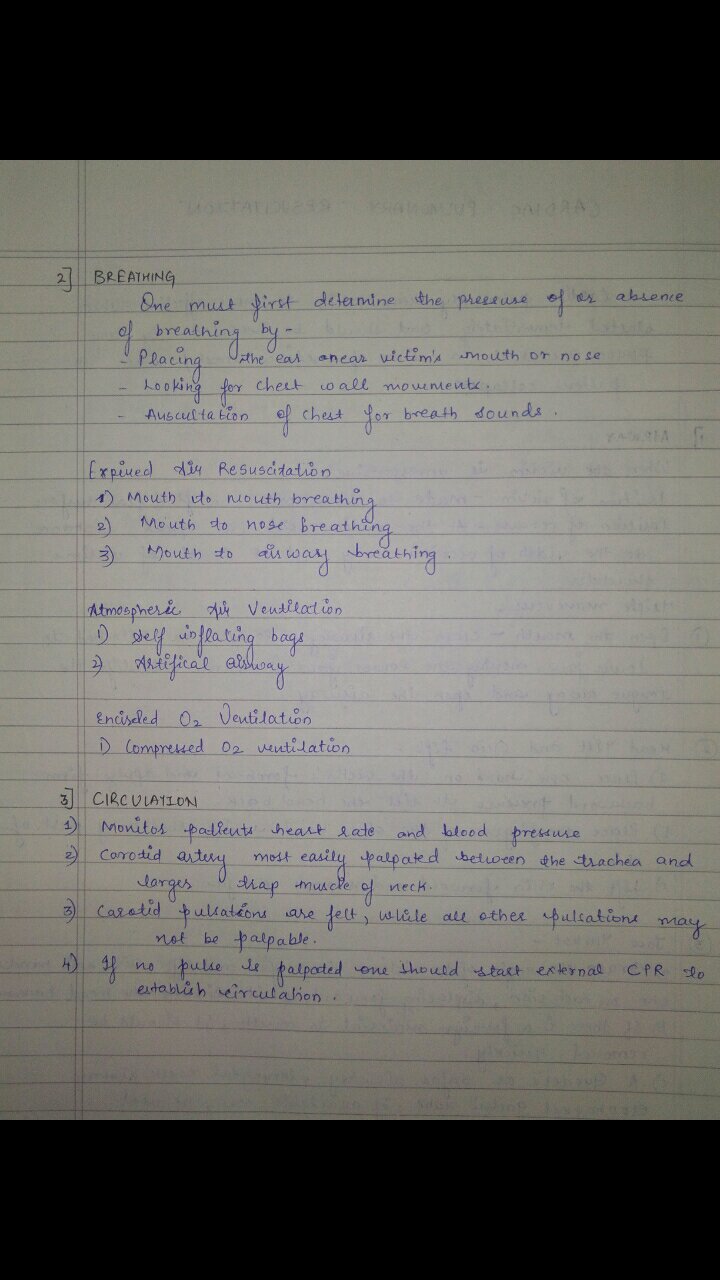 2] BREATHING
One must first determine the pressure of or absence
of breathing by -
- Placing the ear near victim's mouth or nose
- Looking for chest wall movements.
- Auscultation of chest for breath sounds.
Expired Air Resuscitation
1) Mouth to mouth breathing
2) Mouth to nose breathing
3) Mouth to airway breathing.
Atmospheric Air Ventilation
1) Self inflating bags
2) Artifical airway
O2 Ventilation
1) Compressed O2 ventilation
3] CIRCULATION
1) Monitor patients heart rate and blood pressure
2) Carotid artery most easily palpated between the trachea and
larger trap muscle of neck.
3) Carotid pulsations are felt, while all other pulsations may
not be palpable.
4) If no pulse is palpated one should start external CPR to
establish circulation.